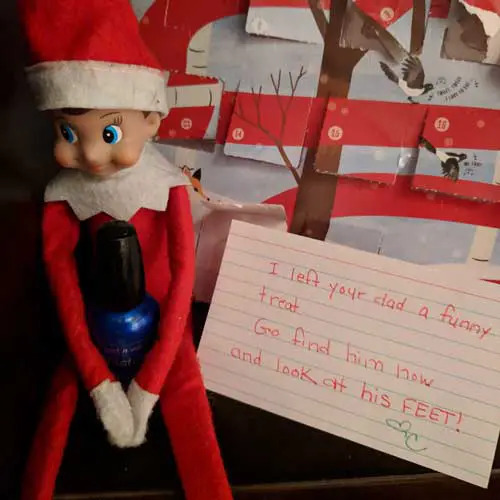 14
15
16
I left your dad a funny
treat
Go find him now
and look at his FEET!